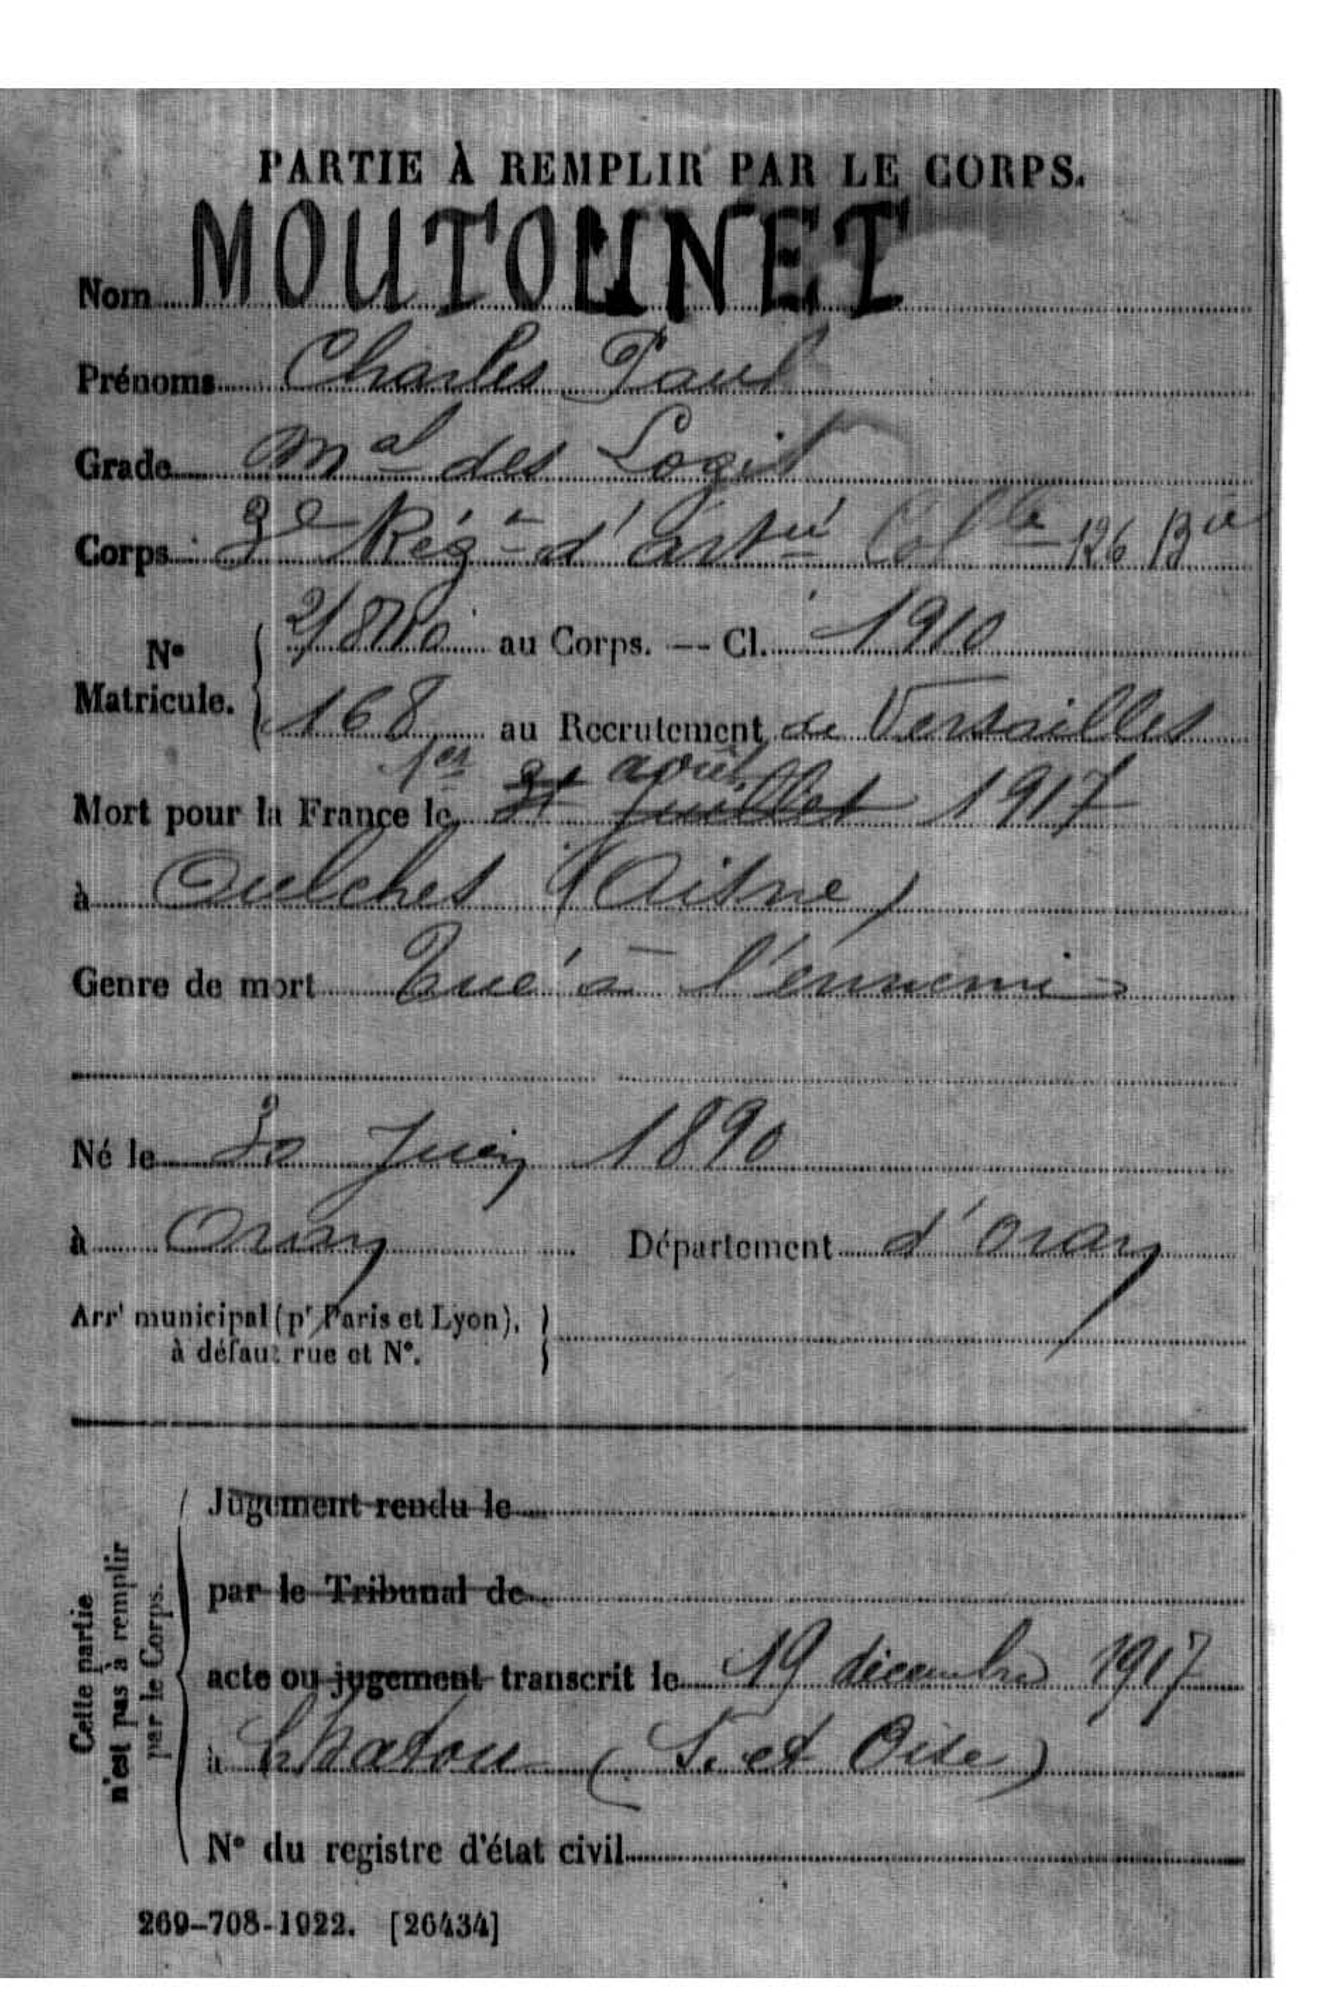 PARTIE À REMPLIR PAR LE CORPS.
Nom MOUTOUNET
Prénoms Charles Paul
Grade Mal des Logis
Corps 3e Régt d'artie Colle 126 Bie
No Matricule. au Corps. — Cl. 1910
168 au Recrutement de Versailles
1er août
Mort pour la France le 31 Juillet 1917
à Oulches (Aisne)
Genre de mort Tué à l'ennemi
Né le 30 Juin 1890
à Oran Département d'Oran
Arrt municipal (pr Paris et Lyon),
à défaut rue et No.
Cette partie
n'est pas à remplir
par le Corps.
Jugement rendu le
par le Tribunal de
acte ou jugement transcrit le 19 décembre 1917
à Chatou (S. et Oise)
No du registre d'état civil
269-708-1922. [26434]